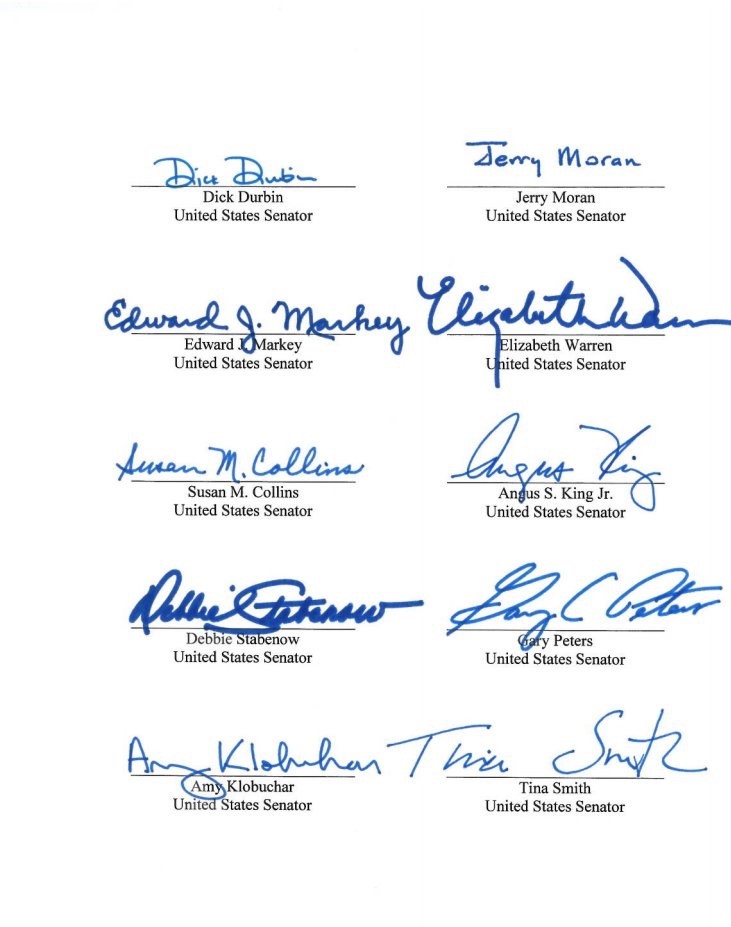 Dick Durbin Jerry Moran
Dick Durbin Jerry Moran
United States Senator United States Senator
Edward J. Markey Elizabeth Warren
Edward J. Markey Elizabeth Warren
United States Senator United States Senator
Susan M. Collins Angus King
Susan M. Collins Angus S. King Jr.
United States Senator United States Senator
Debbie Stabenow Gary C Peters
Debbie Stabenow Gary Peters
United States Senator United States Senator
Amy Klobuchar Tina Smith
Amy Klobuchar Tina Smith
United States Senator United States Senator